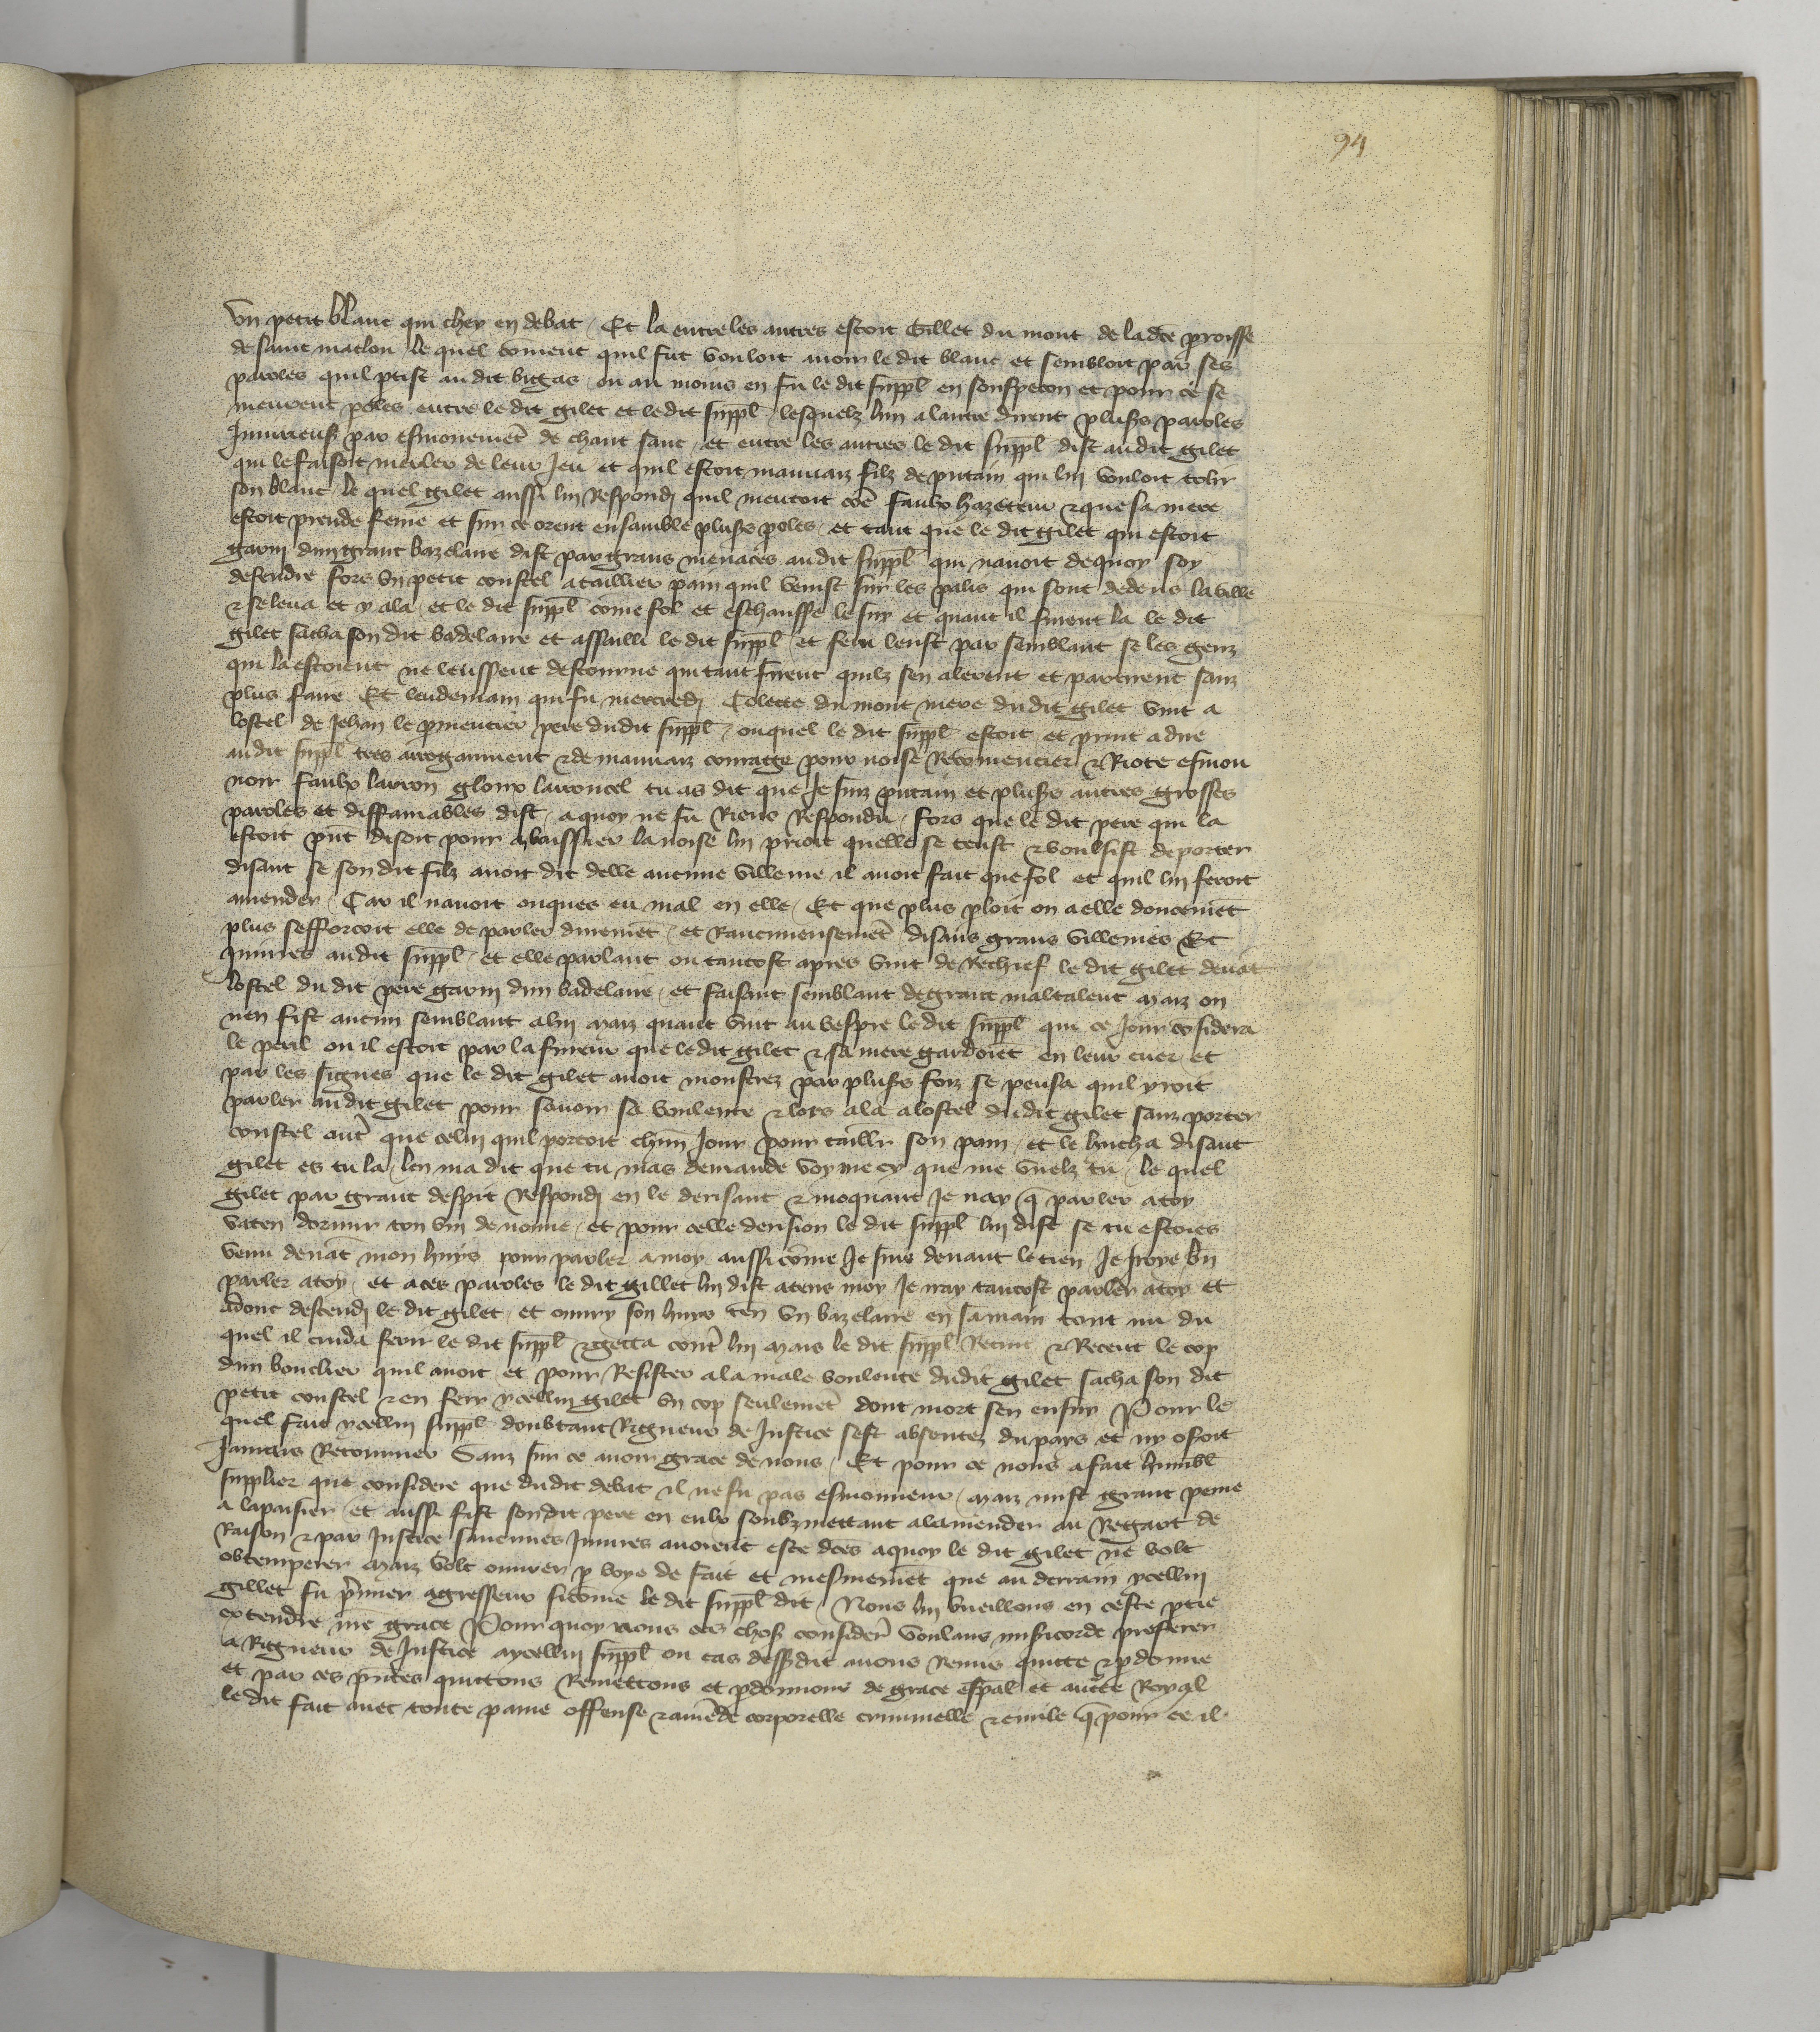 94
un petit blanc qui chey en debat / Et la entre les autres estoit Gillet du mont de lad̄ce p̱roisse
de saint maclou / le quel co̅ment quil fut vouloit auoir le dit blanc et sembloit par ses
paroles quil p̱tist au dit bitgas / ou au moins en fu le dit sup̱pl̄ en souspecon et pour ce se
meurent p̱oles entre le dit gilet et le dit sup̱pl̄ / lesquelz lun a lautre dirent plus̱s paroles
Iniurieus̱ par esmouuem̅et de chaut sanc / et entre les autres le dit sup̱pl̄ dist au dit gilet
qui le faisoit mesler de leur Jeu / et quil estoit mauuaiz filz de putain qui lui vouloit tolir
son blanc / le quel gilet aussi lui Respondi quil mentoit co̅e faulx hazeteur ⁊ que sa mere
estoit preude feme et sur ce orent ensamble plus̱s p̱oles / et tant que le dit gilet qui estoit
garni dun grant bazelaire dist par grans menaces au dit sup̱pl̄ qui nauoit de quoy soy
defendre fors vn petit coustel a taillier pain quil venist sur les palis qui sont dedens la ville
⁊ se leua et y ala / et le dit sup̱pl̄ come fol et eschauffe le suy et quant il furent la le dit
gilet sacha son dit badelaire et assailli le dit sup̱pl̄ et feru leust par semblant se les genz
qui la estoient ne leussent destourne qui tant firent quilz sen alerent et partirent sanz
plus faire Et lendemain qui fu mercredi Colette du mont mere du dit gilet vint a
lostel de Jehan le p̱mentier pere du dit sup̱pl̄ / ouquel le dit sup̱pl̄ estoit / et print a dire
au dit sup̱pl̄ tres arrogamment ⁊ de mauuaiz courage pour noise Recomencier ⁊ Riote esmou
uoir faulx larron glout larroncel tu as dit que Je suiz putain et plus̱s autres grosses
paroles et diffamables dist / a quoy ne fu Riens Respondu / fors que le dit pere qui la
estoit p̅nt disoit pour abaissier la noise lui prioit quelle se teust ⁊ voulsist deporter
disant se son dit filz auoit dit delle aucune villenie il auoit fait que fol et quil lui feroit
amender / Car il nauoit onques eu mal en elle / Et que plus p̱loit on a elle doucem̅et
plus sefforcoit elle de parler durem̅et / et Rancuneusem̅et disans grans villenies Et
Iniures au dit sup̱pl̄ / et elle parlant ou tantost apres vint de Rechief le dit gilet deua̅t
lostel du dit pere garni dun badelaire / et faisant semblant de grant maltalent maiz on
nen fist aucun semblant a lui maiz quant vint au vespre le dit sup̱pl̄ qui ce Jour co̅sidera
le peril ou il estoit par la fureur que le dit gilet ⁊ sa mere gardoie̅t en leur cuer / et
par les signes que le dit gilet auoit monstrez par plus̱s foiz se pensa quil yroit
parler au dit gilet pour sauoir sa voulente ⁊ lors ala a lostel du dit gilet sanz porter
coustel aut̉ que celui quil portoit ch̅un Jour pour taillr̉ son pain / et le hucha disant
gilet es tu la / len ma dit que tu mas demande voy me cy que me vuelz tu / le quel
gilet par grant despit Respondi en le derisant ⁊ moquant Je nay q̅ parler a toy
vaten dormir ton vin de nonne / et pour celle derision le dit sup̱pl̄ lui dist se tu estoies
venu deua̅t mon huys pour parler a moy aussi co̅me Je suis deuant le tien Je Iroye b̅n
parler a toy / et a ces paroles le dit gillet lui dist atens moy Je iray tantost parler a toy et
adonc descendi le dit gilet / et ouury son huis ten̅ vn bazelaire en sa main tout nu du
quel il cuida ferir le dit sup̱pl̄ ⁊ getta cont̉ lui mais le dit sup̱pl̄ Retint ⁊ Receut le cop
dun bouclier quil auoit / et pour Resister a la male voulente du dit gilet sacha son dit
petit coustel ⁊ en fery ycellui gilet vn cop seulem̅et dont mort sen ensuy Pour le
quel fait ycellui sup̱pl̄ doubtant Rigueur de Justice sest absentez du pays et ny osoit
Jamais Retourner Sanz sur ce auoir grace de nous / Et pour ce nous a fait humbl̄
supplier que considere que du dit debat il ne fu pas esmouueur / maiz mist grant peine
a lapaisier / et aussi fist son dit pere en eulx soubzmettant a lamender au Regart de
Raison ⁊ par Justice saucunes Iniures auoient este d̅ces a quoy le dit gilet ne volt
obtemperer maiz volt ouurer p̱ voye de fait et mesmem̅et que au derrain ycellui
gillet fu p̉mier agresseur si co̅me le dit sup̱pl̄ dit / Nous lui vueillons en ceste p̱tie
extendre n̅re grace Pour quoy nous ces chos̱ consider̉ voulans mis̉icorde preferer
a Rigueur de Justice a ycellui sup̱pl̄ ou cas dess̱dit auons Remis quitte ⁊ p̱donne
et par ces p̅ntes quittons Remettons et p̱donnons de grace esp̅al et aucte̅ Royal
le dit fait auec toute paine offense ⁊ ame̅de corporelle criminelle ⁊ ciuile q̅ pour ce il